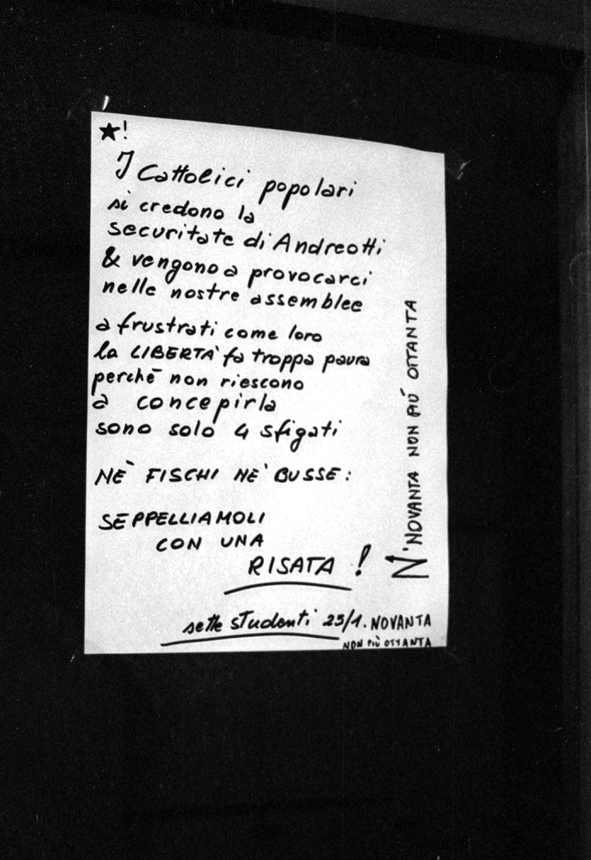 ★!
I Cattolici popolari
si credono la
securitate di Andreotti
& vengono a provocarci
nelle nostre assemblee
a frustrati come loro
la LIBERTÀ fa troppa paura
perchè non riescono
a concepirla
sono solo 4 sfigati
NÈ FISCHI NE' BUSSE:
SEPPELLIAMOLI
CON UNA
RISATA!
sette studenti 23/1. NOVANTA
NON PIÙ OTTANTA
N'NOVANTA NON PIÚ OTTANTA